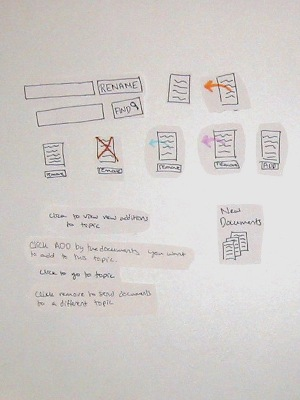 RENAME
FIND
remove
remove
remove
remove
ADD
Click to view new additions
to topic
New
Documents
Click ADD by the documents you want
to add to this topic.
Click to go to topic
Click remove to send documents
to a different topic